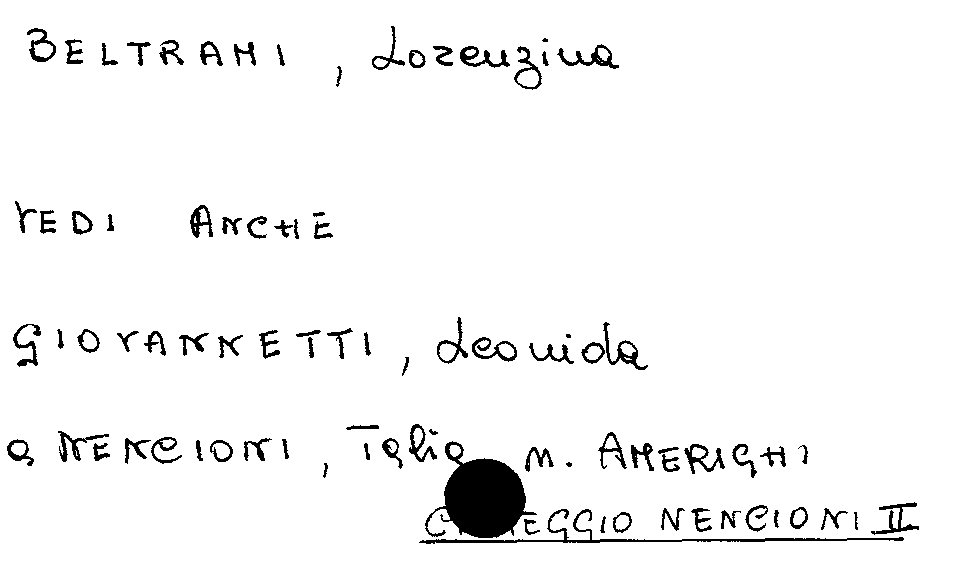 BELTRAMI, Lorenzina
VEDI ANCHE
GIOVANNETTI, Leonida
a NENCIONI, Talia m. AMERIGHI
NENCIONI II